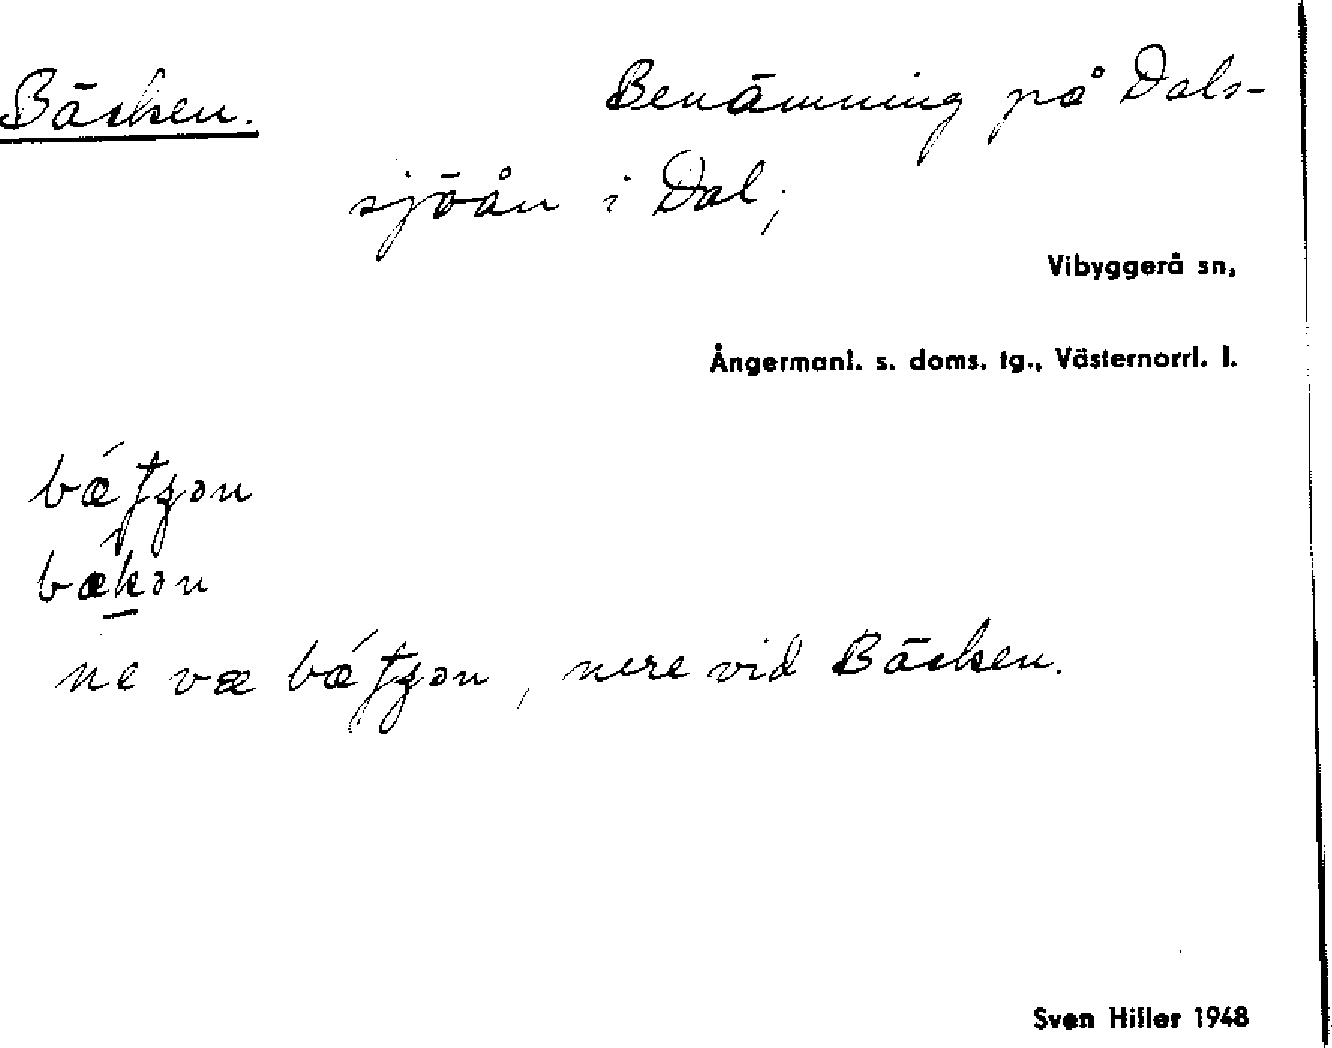 Bäcken. Benämning på Dals-
sjöån i Dal;
Vibyggerå sn,
Ångermanl. s. doms. tg., Västernorrl. l.
bækən
ne væ , nere vid Bäcken.
Sven Hiller 1948